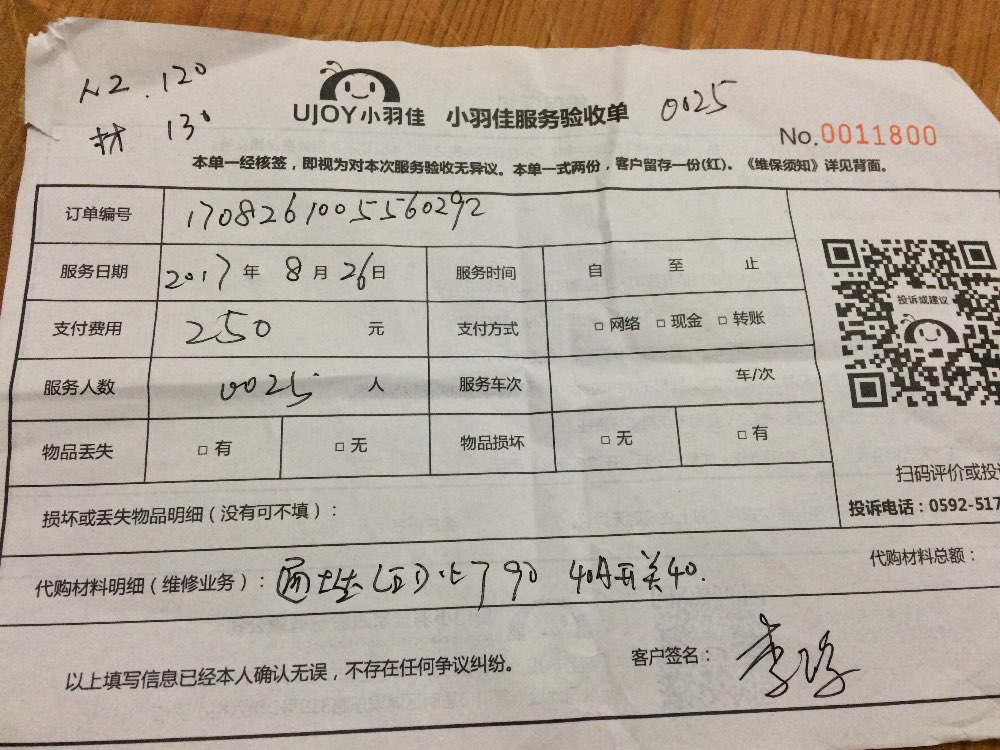 人工.120
材 130
UJOY小羽佳 小羽佳服务验收单 0025
No.0011800
本单一经核签，即视为对本次服务验收无异议。本单一式两份，客户留存一份(红)。《维保须知》详见背面。
订单编号 17082610055560292
服务日期 2017年8月26日 服务时间 自 至 止
支付费用 250 元 支付方式 □网络 □现金 □转账
服务人数 0025 人 服务车次 车/次
物品丢失 □有 □无 物品损坏 □无 □有
投诉或建议
扫码评价或投
投诉电话：0592-517
损坏或丢失物品明细（没有可不填）：
代购材料明细（维修业务）： 90 40A开关40. 代购材料总额：
以上填写信息已经本人确认无误，不存在任何争议纠纷。 客户签名： 李